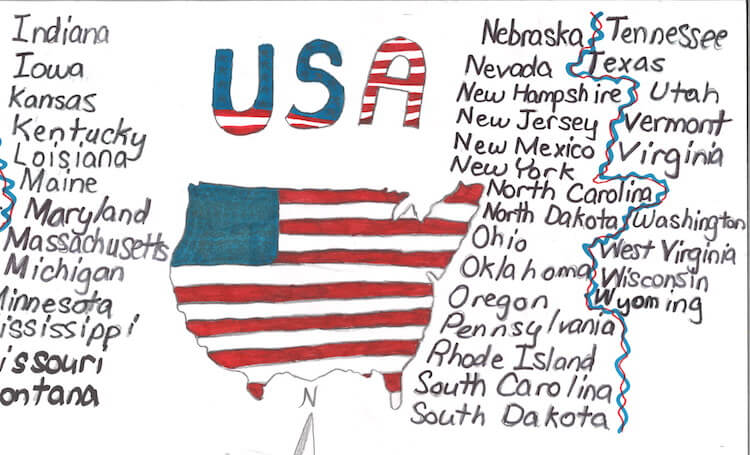 USA
Indiana
Iowa
Kansas
Kentucky
Loisiana
Maine
Maryland
Massachusetts
Michigan
Minnesota
ississippi
issouri
ontana
N
Nebraska
Nevada
New Hampshire
New Jersey
New Mexico
New York
North Carolina
North Dakota
Ohio
Oklahoma
Oregon
Pennsylvania
Rhode Island
South Carolina
South Dakota
Tennessee
Texas
Utah
Vermont
Virginia
Washington
West Virginia
Wisconsin
Wyoming